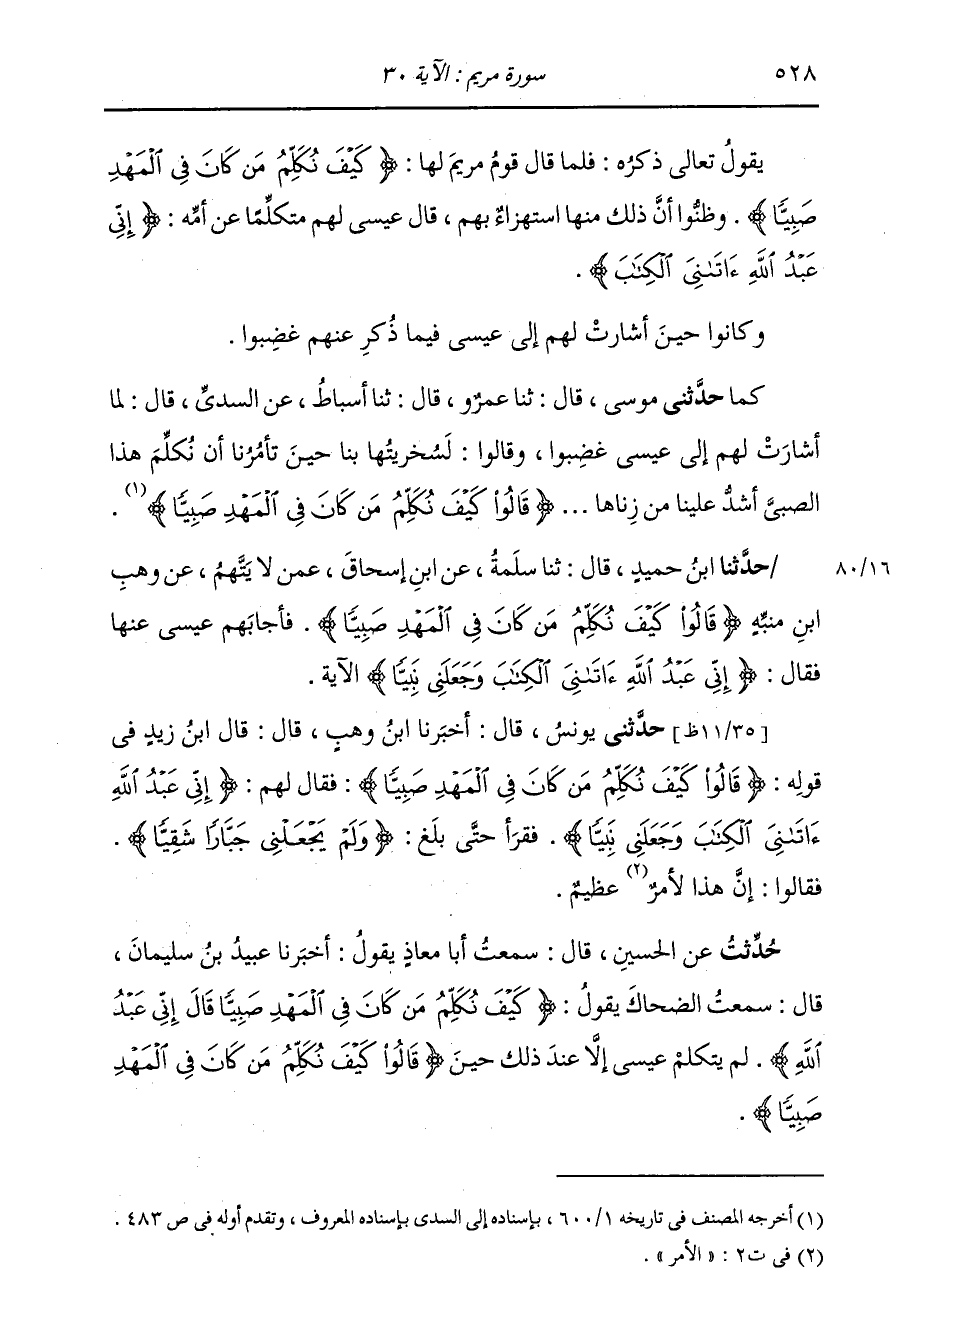 ٥٢٨ سورة مريم : الآية ٣٠
يقولُ تعالى ذكرُه : فلما قال قومُ مريمَ لها : ﴿ كَيْفَ نُكَلِّمُ مَن كَانَ فِى ٱلْمَهْدِ
صَبِيًّا ﴾ . وظنُّوا أنَّ ذلك منها استهزاءٌ بهم ، قال عيسى لهم متكلِّمًا عن أمِّه : ﴿ إِنِّى
عَبْدُ ٱللَّهِ ءَاتَىٰنِىَ ٱلْكِتَٰبَ ﴾ .
وكانوا حينَ أشارتْ لهم إلى عيسى فيما ذُكرِ عنهم غضِبوا .
كما حدَّثنى موسى ، قال : ثنا عمرٌو ، قال : ثنا أسباطُ ، عن السدىِّ ، قال : لما
أشارَتْ لهم إلى عيسى غضِبوا ، وقالوا : لَسُخريتُها بنا حينَ تأمُرُنا أن نُكلِّمَ هذا
الصبىَّ أشدُّ علينا من زِناها ... ﴿ قَالُوا۟ كَيْفَ نُكَلِّمُ مَن كَانَ فِى ٱلْمَهْدِ صَبِيًّا ﴾(١) .
٨٠/١٦ /حدَّثنا ابنُ حميدٍ ، قال : ثنا سلَمةُ ، عن ابنِ إسحاقَ ، عمن لا يَتَّهِمُ ، عن وهبِ
ابنِ منبِّهٍ ﴿ قَالُوا۟ كَيْفَ نُكَلِّمُ مَن كَانَ فِى ٱلْمَهْدِ صَبِيًّا ﴾ . فأجابَهم عيسى عنها
فقال : ﴿ إِنِّى عَبْدُ ٱللَّهِ ءَاتَىٰنِىَ ٱلْكِتَٰبَ وَجَعَلَنِى نَبِيًّا ﴾ الآية .
[١١/٣٥ظ] حدَّثنى يونسُ ، قال : أخبَرنا ابنُ وهبٍ ، قال : قال ابنُ زيدٍ فى
قولِه : ﴿ قَالُوا۟ كَيْفَ نُكَلِّمُ مَن كَانَ فِى ٱلْمَهْدِ صَبِيًّا ﴾ : فقال لهم : ﴿ إِنِّى عَبْدُ ٱللَّهِ
ءَاتَىٰنِىَ ٱلْكِتَٰبَ وَجَعَلَنِى نَبِيًّا ﴾ . فقرَأ حتَّى بلَغ : ﴿ وَلَمْ يَجْعَلْنِى جَبَّارًا شَقِيًّا ﴾ .
فقالوا : إنَّ هذا لأمرٌ(٢) عظيمٌ .
حُدِّثتُ عن الحسينِ ، قال : سمعتُ أبا معاذٍ يقولُ : أخبَرنا عبيدُ بنُ سليمانَ ،
قال : سمعتُ الضحاكَ يقولُ : ﴿ كَيْفَ نُكَلِّمُ مَن كَانَ فِى ٱلْمَهْدِ صَبِيًّا قَالَ إِنِّى عَبْدُ
ٱللَّهِ ﴾ . لم يتكلمْ عيسى إلَّا عندَ ذلك حينَ ﴿ قَالُوا۟ كَيْفَ نُكَلِّمُ مَن كَانَ فِى ٱلْمَهْدِ
صَبِيًّا ﴾ .
(١) أخرجه المصنف فى تاريخه ٦٠٠/١ ، بإسناده إلى السدى بإسناده المعروف ، وتقدم أوله فى ص ٤٨٣ .
(٢) فى ت٢ : « الأمر » .